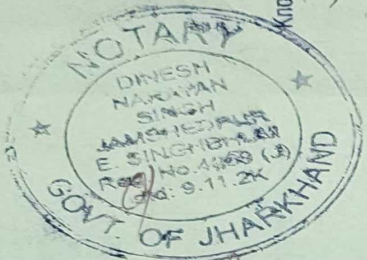 Kno
NOTARY
DINESH
NARAYAN
SINGH
JAMSHEDPUR
E. SINGHBHUM
Reg. No.
9.11.2K
GOVT. OF JHARKHAND